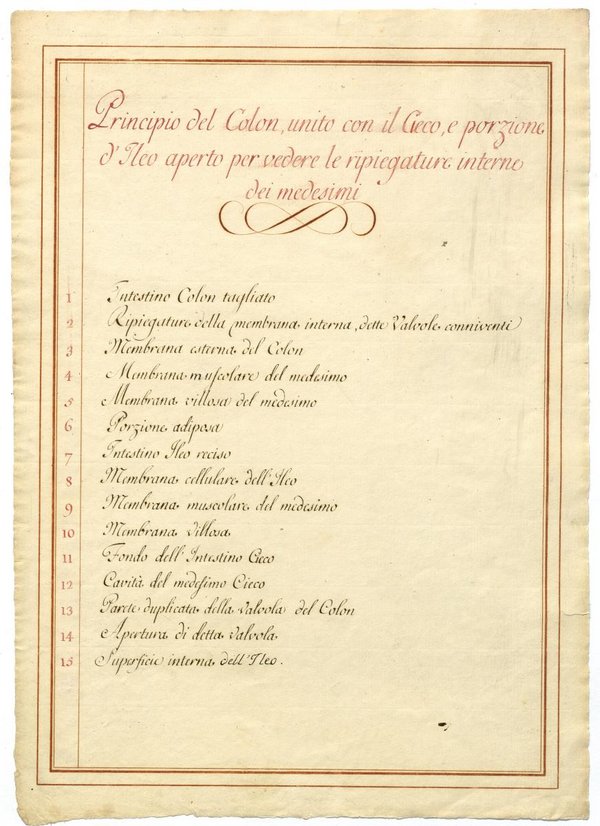 Principio del Colon, unito con il Cieco, e porzione
d'Ileo aperto per vedere le ripiegature interne
dei medesimi
1 Intestino Colon tagliato
2 Ripiegature della membrana interna, dette Valvole conniventi
3 Membrana esterna del Colon
4 Membrana muſcolare del medesimo
5 Membrana villosa del medesimo
6 Porzione adiposa
7 Intestino Ileo reciso
8 Membrana cellulare dell'Ileo
9 Membrana muscolare del medesimo
10 Membrana villosa
11 Fondo dell'Intestino Cieco
12 Cavità del medeſimo Cieco
13 Parete duplicata della valvola del Colon
14 Apertura di detta valvola
15 Superficie interna dell'Ileo.